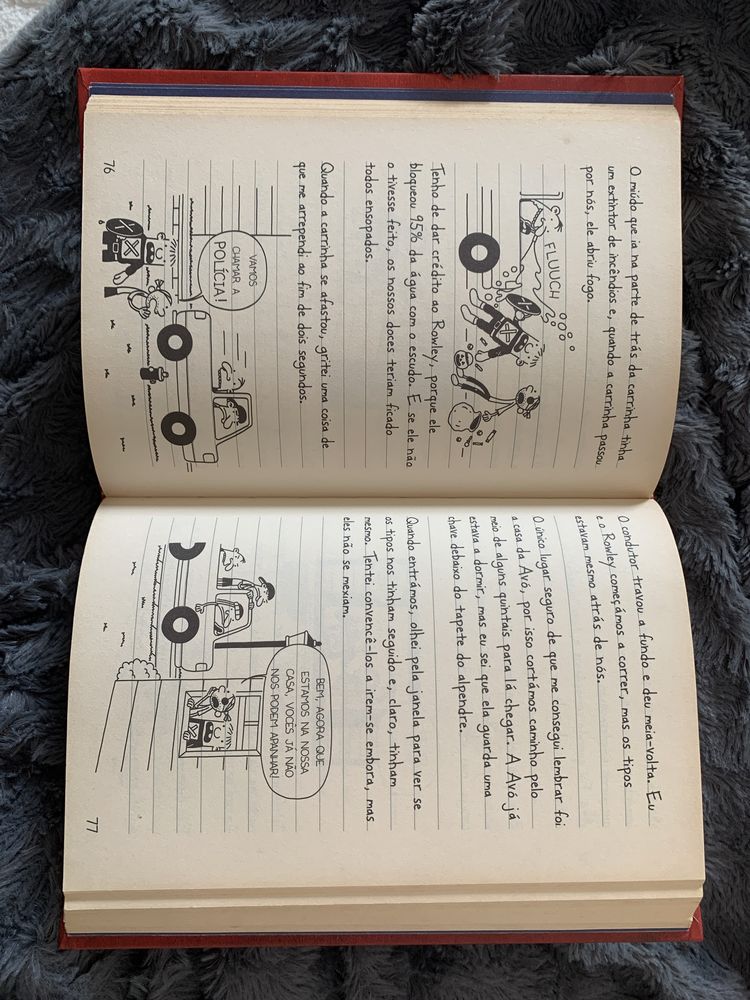 O miúdo que ia na parte de trás da carrinha tinha
um extintor de incêndios e, quando a carrinha passou
por nós, ele abriu fogo.
FLUUCH
Tenho de dar crédito ao Rowley, porque ele
bloqueou 95% da água com o escudo. E se ele não
o tivesse feito, os nossos doces teriam ficado
todos ensopados.
Quando a carrinha se afastou, gritei uma coisa de
que me arrependi ao fim de dois segundos.
VAMOS
CHAMAR A
POLÍCIA!
76
O condutor travou a fundo e deu meia-volta. Eu
e o Rowley começámos a correr, mas os tipos
estavam mesmo atrás de nós.
O único lugar seguro de que me consegui lembrar foi
a casa da Avó, por isso cortámos caminho pelo
meio de alguns quintais para lá chegar. A Avó já
estava a dormir, mas eu sei que ela guarda uma
chave debaixo do tapete do alpendre.
Quando entrámos, olhei pela janela para ver se
os tipos nos tinham seguido e, claro, tinham
mesmo. Tentei convencê-los a irem-se embora, mas
eles não se mexiam.
BEM, AGORA QUE
ESTAMOS NA NOSSA
CASA, VOCÊS JÁ NÃO
NOS PODEM APANHAR!
77